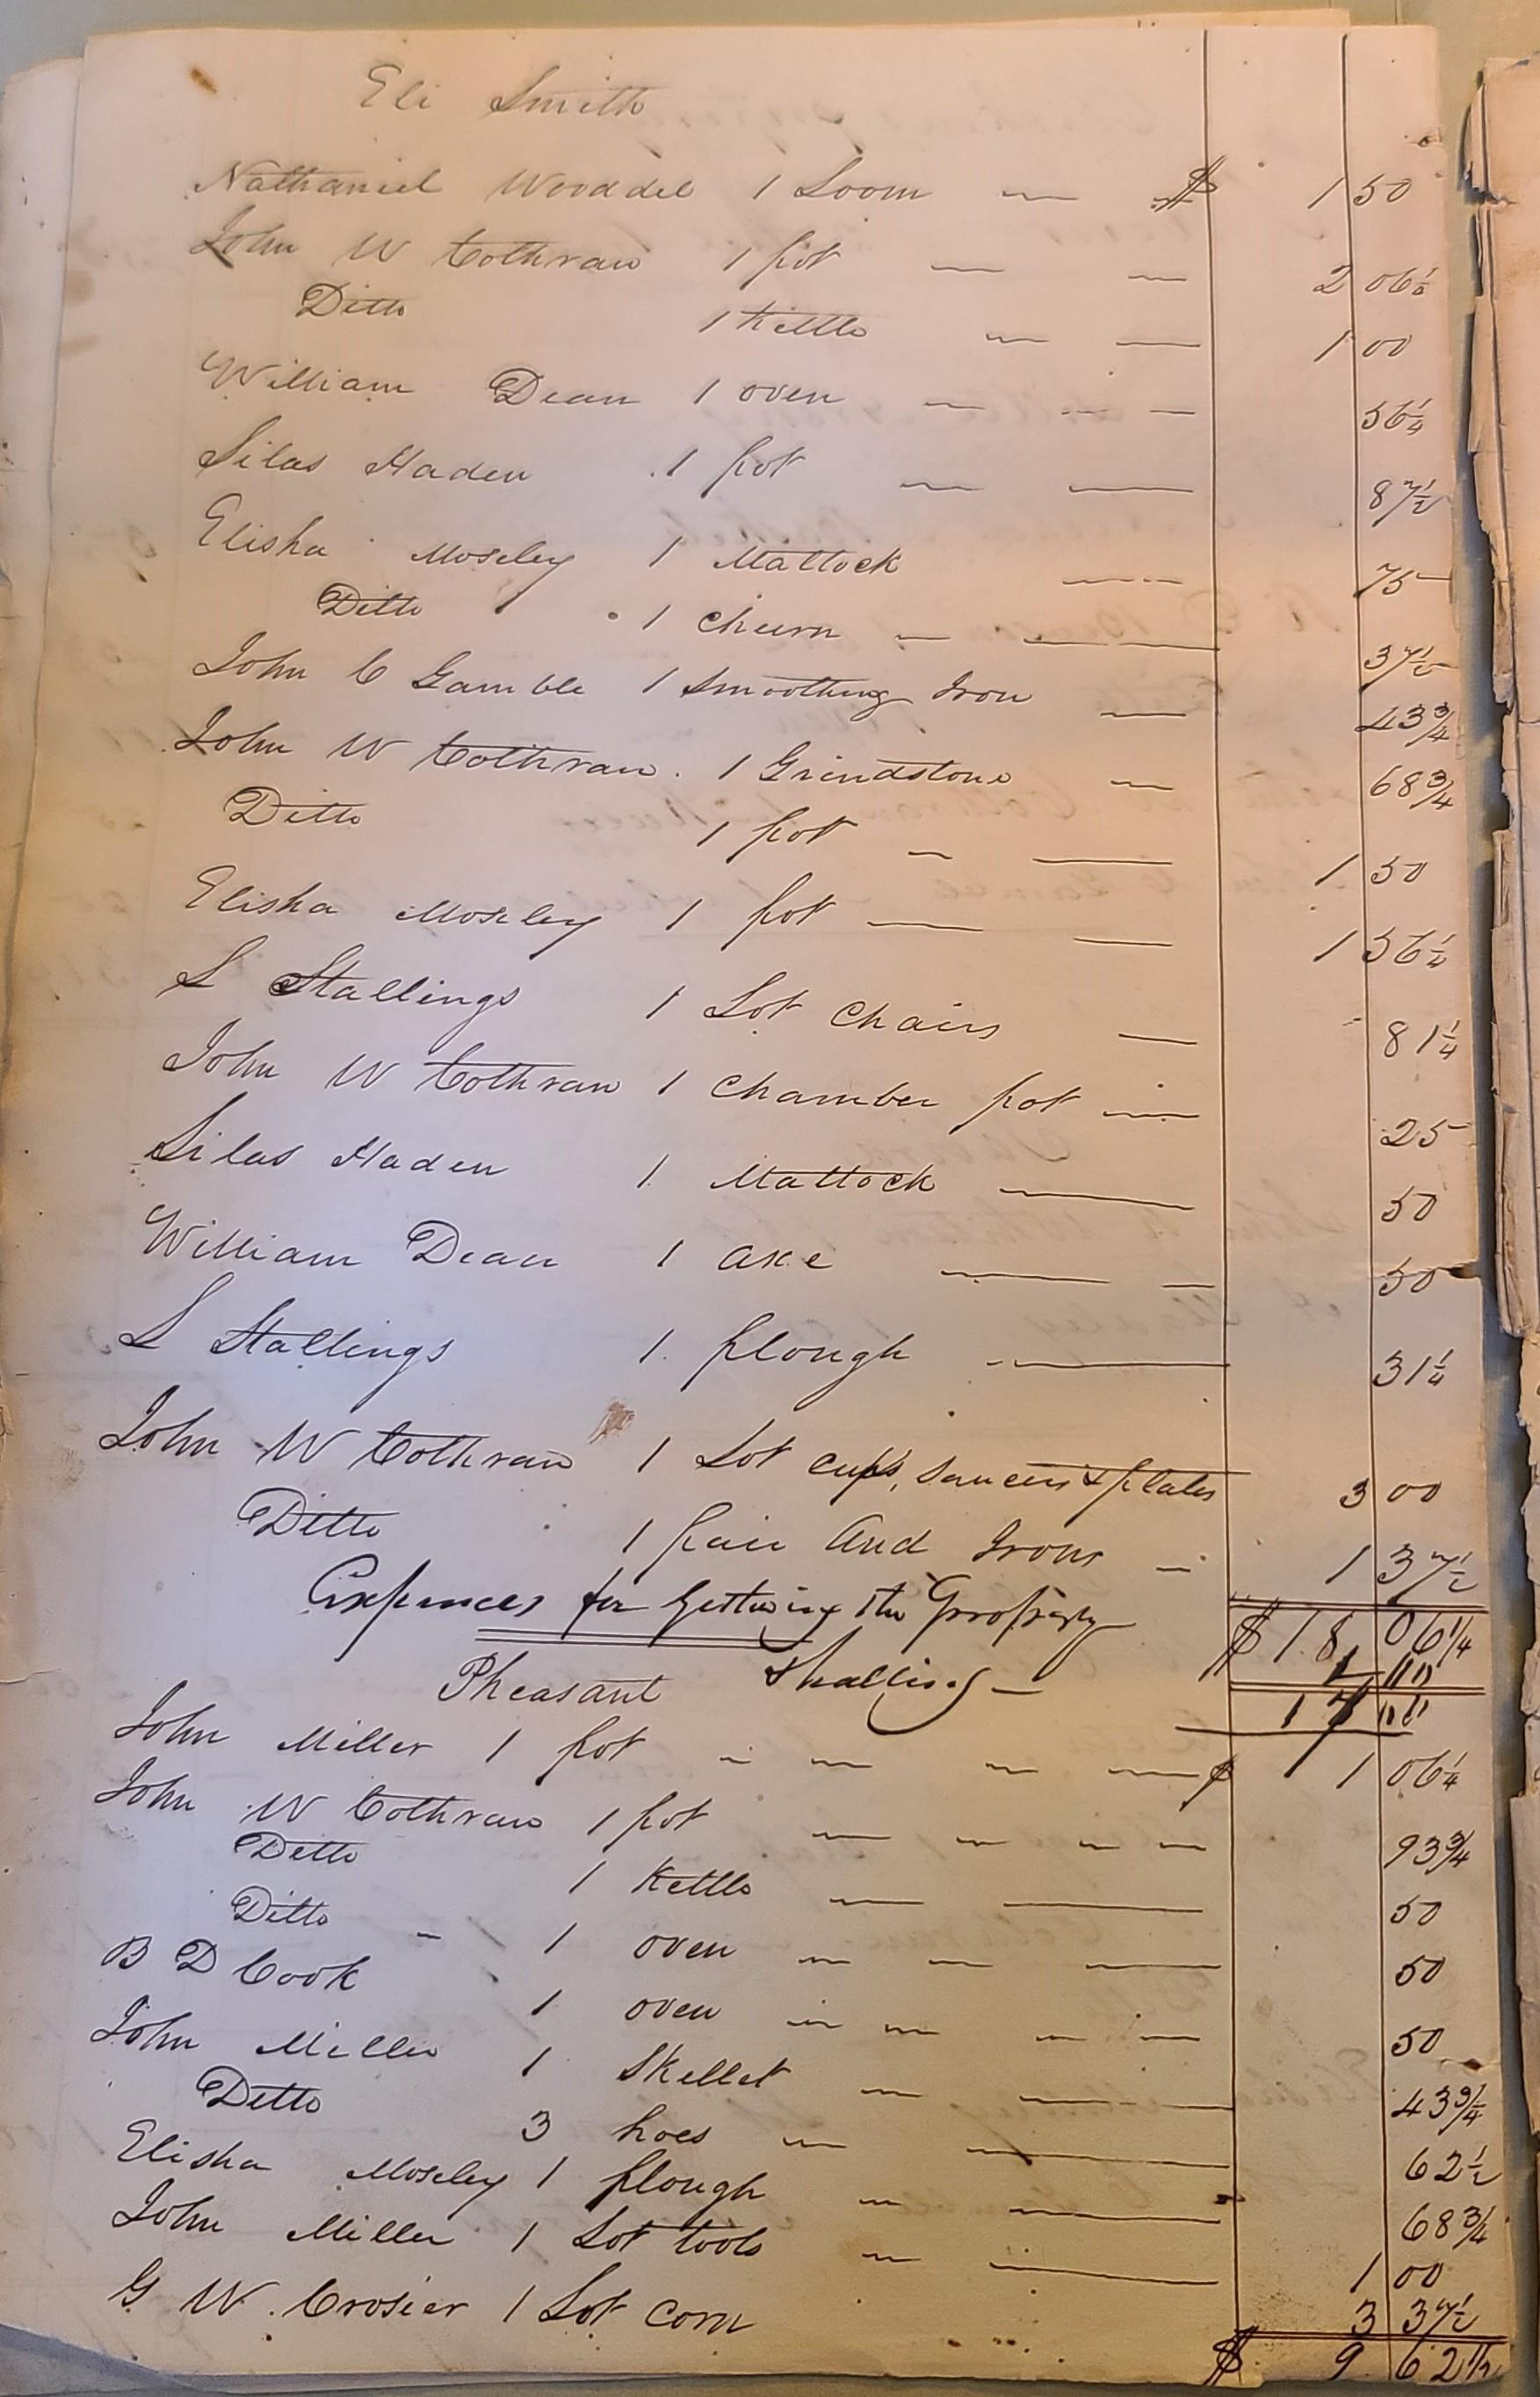 Eli Smith
Nathaniel Wooddel 1 Loom $ 1 50
John W Cothran 1 pot 2 06¼
Ditto 1 Kettle 1 00
William Dean 1 oven 56¼
Silas Haden 1 pot 87½
Elisha Moseley 1 Mattock 75
Ditto 1 Churn 37½
John C Gamble 1 Smoothing Iron 43¾
John W Cothran 1 Grindstone 68¾
Ditto 1 pot 1 50
Elisha Moseley 1 pot 1 56¼
S Stallings 1 Lot Chairs 81¼
John W Cothran 1 Chamber pot 25
Silas Haden 1 Mattock 50
William Dean 1 axe 50
S Stallings 1 plough 31¼
John W Cothran 1 Lot cups, saucers & plates 3 00
Ditto 1 pair And Irons 1 37½
Expences for Getting the Property $18,06¼
1 "" 
Pheasant 17 ""
John Miller 1 pot $ 1 06¼
John W Cothran 1 pot 93¾
Ditto 1 Kettle 50
Ditto 1 oven 50
B D Cook 1 oven 50
John Miller 1 Skellet 43¾
Ditto 3 hoes 62½
Elisha Moseley 1 plough 68¾
John Miller 1 Lot tools 1 00
G W Crosier 1 Lot corn 3 37½
$ 9 62½